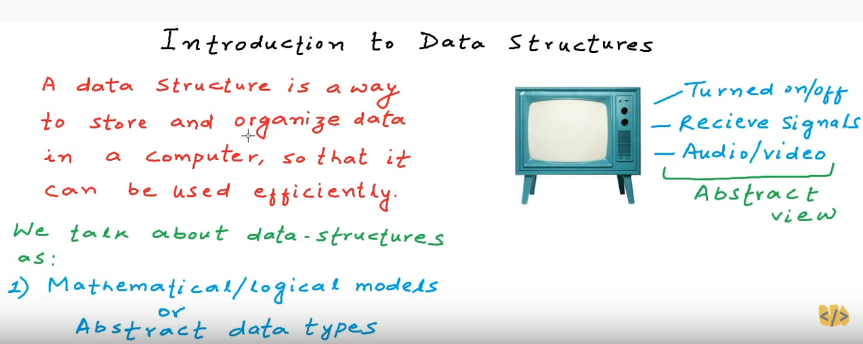 Introduction to Data Structures
A data structure is a way
to store and organize data
in a computer, so that it
can be used efficiently.
We talk about data-structures
as:
1) Mathematical/logical models
or
Abstract data types
Turned on/off
- Recieve signals
- Audio/video
Abstract
view
</>